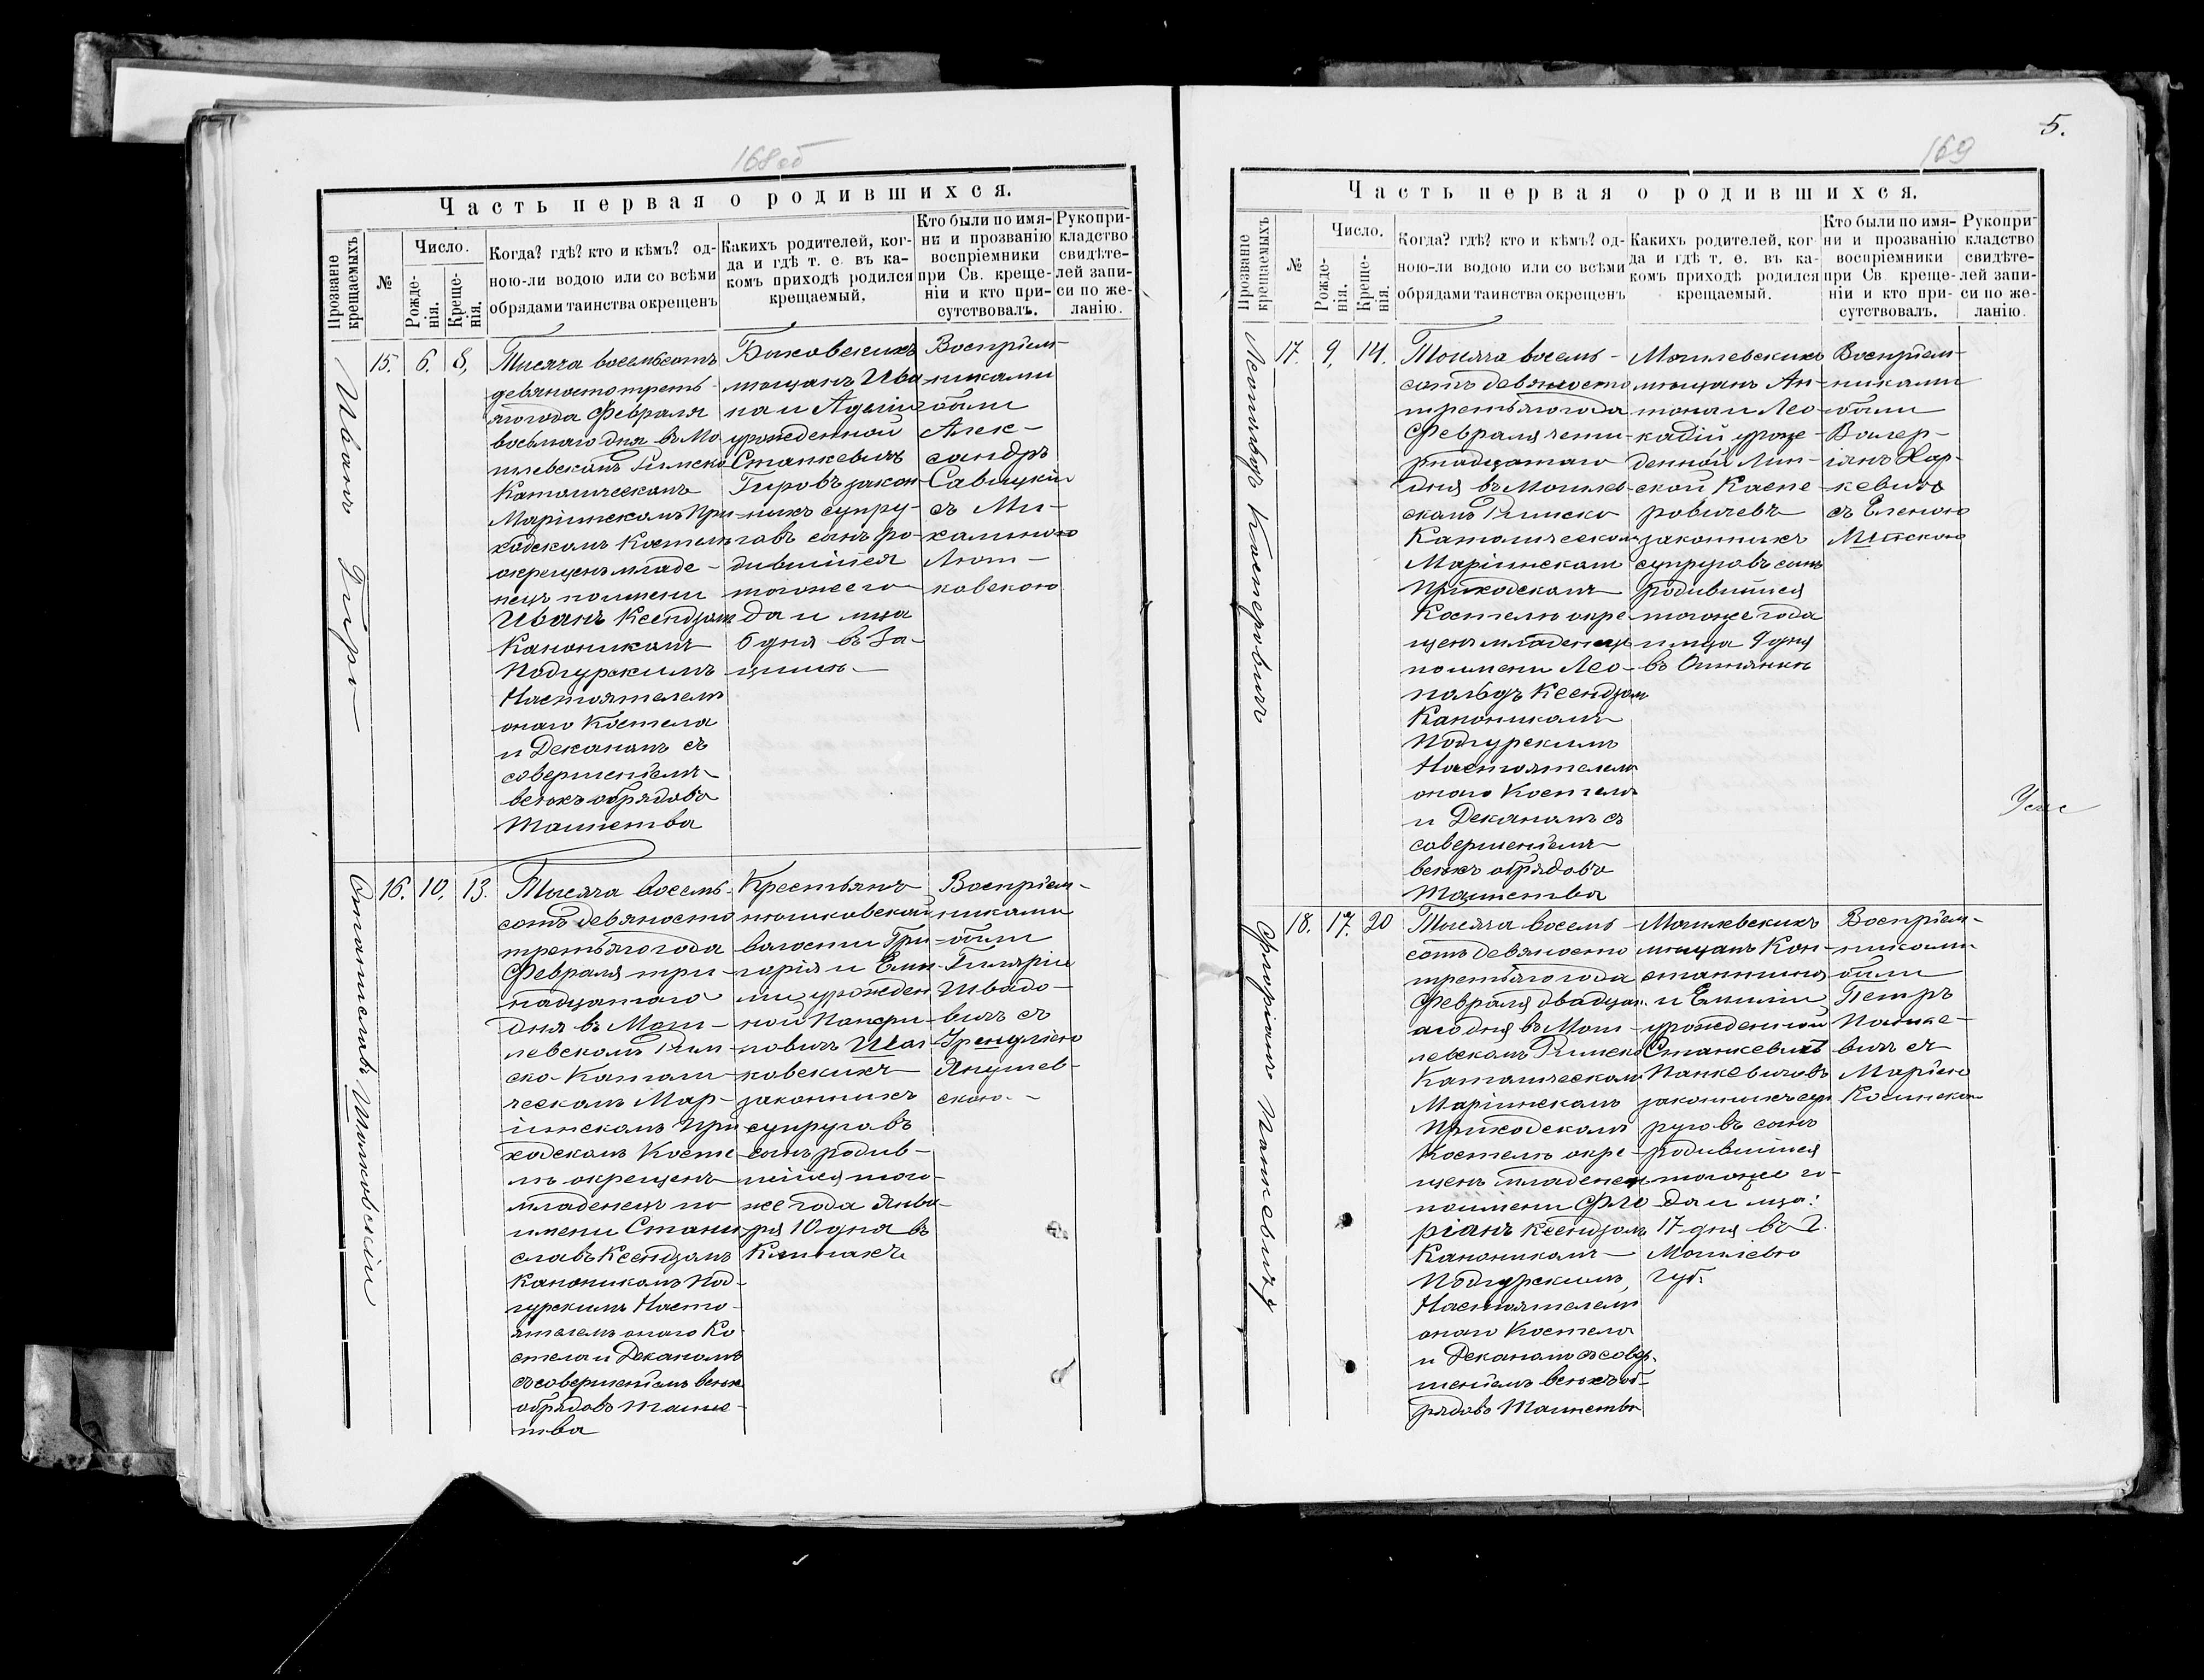 168 об
Часть первая о родившихся.
Прозваніе крещаемыхъ
№
Число.
Рожде-
нія.
Креще-
нія.
Когда? гдѣ? кто и кѣмъ? од-
ною-ли водою или со всѣми
обрядами таинства окрещенъ
Какихъ родителей, ког-
да и гдѣ т. е. въ ка-
комъ приходѣ родился
крещаемый,
Кто были по имя-
ни и прозванію
воспріемники
при Св. креще-
ніи и кто при-
сутствовалъ.
Рукопри-
кладство
свидѣте-
лей запи-
си по же-
ланію.
Иванъ
15. 6. 8,
Тысяча восемьсотъ
девяносто треть-
яго года Февраля
восьмаго дня въ Мо
гилевскомъ Римско
Католическомъ
Маріинскомъ При-
ходскомъ Костелѣ
окрещенъ младе-
нецъ по имени
Иванъ Ксендзомъ
Каноникомъ
Подгурскимъ
Настоятелемъ
онаго Костела
и Деканомъ съ
совершеніемъ
всѣхъ обрядовъ
Таинства
мѣщанъ Ива
на и Аделіи
урожденной
Станкевичъ
закон-
ныхъ супру-
говъ сынъ ро-
дившійся
тогоже го
да и мца
6 дня въ За-
Воспріем-
никами
были
Алек-
сандръ
Савицкій
съ Ми-
халиною
Лют-
ковскою
Станиславъ
16. 10. 13.
Тысяча восемь-
сотъ девяносто
третьяго года
Февраля три-
надцатаго
дня въ Моги-
левскомъ Рим-
ско-Католи-
ческомъ Мар-
іинскомъ При
ходскомъ Косте
лѣ окрещенъ
младенецъ по
имени Стани
славъ Ксендзомъ
Каноникомъ Под-
гурскимъ Насто-
ятелемъ онаго Ко
стела и Деканомъ
съ совершеніемъ всѣхъ
обрядовъ Таинс-
тва
Крестьянъ
волости Гри-
горія и Еми-
ліи урожден
ной
законныхъ
супруговъ
сынъ родив-
шійся того
же года Янва-
ря 10 дня въ
Воспріем-
никами
были
Гиляріи
съ
Янушев-
скою.
5.
169
Часть первая о родившихся.
Прозваніе крещаемыхъ
№
Число.
Рожде-
нія.
Креще-
нія.
Когда? гдѣ? кто и кѣмъ? од-
ною-ли водою или со всѣми
обрядами таинства окрещенъ
Какихъ родителей, ког-
да и гдѣ т. е. въ ка-
комъ приходѣ родился
крещаемый.
Кто были по имя-
ни и прозванію
воспріемники
при Св. креще-
ніи и кто при-
сутствовалъ.
Рукопри
кладство
свидѣте-
лей запи-
си по же-
ланію.
Леопольдъ Касперовичъ
17. 9, 14.
Тысяча восемь-
сотъ девяносто
третьяго года
Февраля четы-
рнадцатаго
дня въ Могилев-
скомъ Римско
Католическомъ
Маріинскомъ
Приходскомъ
Костелѣ окре
щенъ младенецъ
по имени Лео-
польдъ Ксендзомъ
Каноникомъ
Подгурскимъ
Настоятелемъ
онаго Костела
и Деканомъ съ
совершеніемъ
всѣхъ обрядовъ
Таинства
Могилевскихъ
мѣщанъ Ан-
тона и Лео-
кадіи урож-
денной Лип-
ской Каспе
ровичевъ
законныхъ
супруговъ сынъ
родившійся
тогоже года
и мца 9 дня
въ
Воспріем-
никами
были
Валер-
іянъ Хар-
кевичъ
съ Еленою
Липскою
Флоріянъ Панкевичъ
18. 17. 20
Тысяча восемь
сотъ девяносто
третьяго года
Февраля двадцат.
аго дня въ Моги-
левскомъ Римско
Католическомъ
Маріинскомъ
Приходскомъ
Костелѣ окре-
щенъ младенецъ
по имени Фло
ріанъ Ксендзомъ
Каноникомъ
Подгурскимъ,
Настоятелемъ
онаго Костела
и Деканомъ съ совер-
шеніемъ всѣхъ об-
рядовъ Таинства
Могилевскихъ
мѣщанъ Кон-
стантина
и Емиліи
урожденной
Станкевичъ
Панкевичовъ
законныхъ суп
руговъ сынъ
родившійся
тогоже го-
да и мца:
17 дня въ г.
Могилевѣ
губ.
Воспріем-
никами
были
Петръ
Панке-
вичъ съ
Маріею